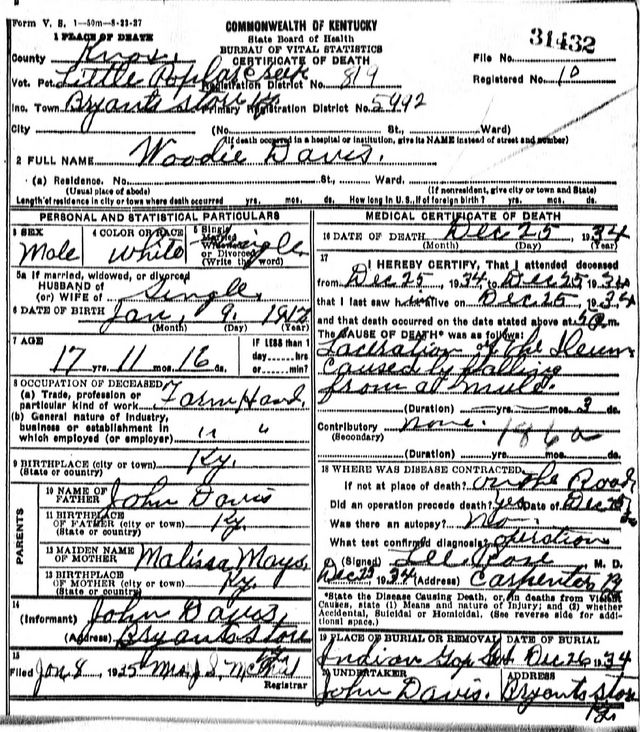 Form V. S. 1—50m—8-23-27
COMMONWEALTH OF KENTUCKY
State Board of Health
BUREAU OF VITAL STATISTICS
CERTIFICATE OF DEATH
31432
1 PLACE OF DEATH
County Knox
File No.
Vot. Pct. Little Poplar Creek Registration District No. 819
Registered No. 10
Inc. Town Bryants Store Ky Primary Registration District No. 5992
City (No. St., Ward)
(If death occurred in a hospital or institution, give its NAME instead of street and number)
2 FULL NAME Woodie Davis.
(a) Residence. No. St., Ward.
(Usual place of abode) (If nonresident, give city or town and State)
Length of residence in city or town where death occurred yrs. mos. ds. How long in U. S., if of foreign birth? yrs. mos. ds.
PERSONAL AND STATISTICAL PARTICULARS
3 SEX Male
4 COLOR OR RACE White
5 Single Married Widowed or Divorced (Write the word) Single
5a If married, widowed, or divorced
HUSBAND of
(or) WIFE of Single
6 DATE OF BIRTH Jan, 9, 1917
(Month) (Day) (Year)
7 AGE
17 yrs. 11 mos. 16 ds.
IF LESS than 1 day hrs. or min?
8 OCCUPATION OF DECEASED
(a) Trade, profession or particular kind of work Farm Hand,
(b) General nature of industry, business or establishment in which employed (or employer) " "
9 BIRTHPLACE (city or town) Ky.
(State or country)
PARENTS
10 NAME OF FATHER John Davis
11 BIRTHPLACE OF FATHER (city or town) Ky.
(State or country)
12 MAIDEN NAME OF MOTHER Malissa Mays.
13 BIRTHPLACE OF MOTHER (city or town) Ky.
(State or country)
14
(Informant) John Davis,
(Address) Bryants Store
15
Filed Jan 8, 1935 Mrs. J. S.
Registrar
MEDICAL CERTIFICATE OF DEATH
16 DATE OF DEATH Dec 25, 1934
(Month) (Day) (Year)
17
I HEREBY CERTIFY, That I attended deceased
from Dec 25, 1934 to Dec 25 1934
that I last saw h alive on Dec 25, 1934
and that death occurred on the date stated above at m.
The CAUSE OF DEATH* was as follows:
Laceration of the Ileum
caused by falling
from a mule.
(Duration) yrs. mos. 3 ds.
Contributory none. 186a
(Secondary)
(Duration) yrs. mos. ds.
18 WHERE WAS DISEASE CONTRACTED
If not at place of death? on the Road
Did an operation precede death? yes Date of Dec 25
Was there an autopsy? No
What test confirmed diagnosis? operation
(Signed) M. D.
Dec 1934 (Address) Carpenter Ky
*State the Disease Causing Death, or, in deaths from Violent Causes, state (1) Means and nature of Injury; and (2) whether Accidental, Suicidal or Homicidal. (See reverse side for additional space.)
19 PLACE OF BURIAL OR REMOVAL Indian Gap
DATE OF BURIAL Dec 26 1934
20 UNDERTAKER John Davis.
ADDRESS Bryants Store Ky.